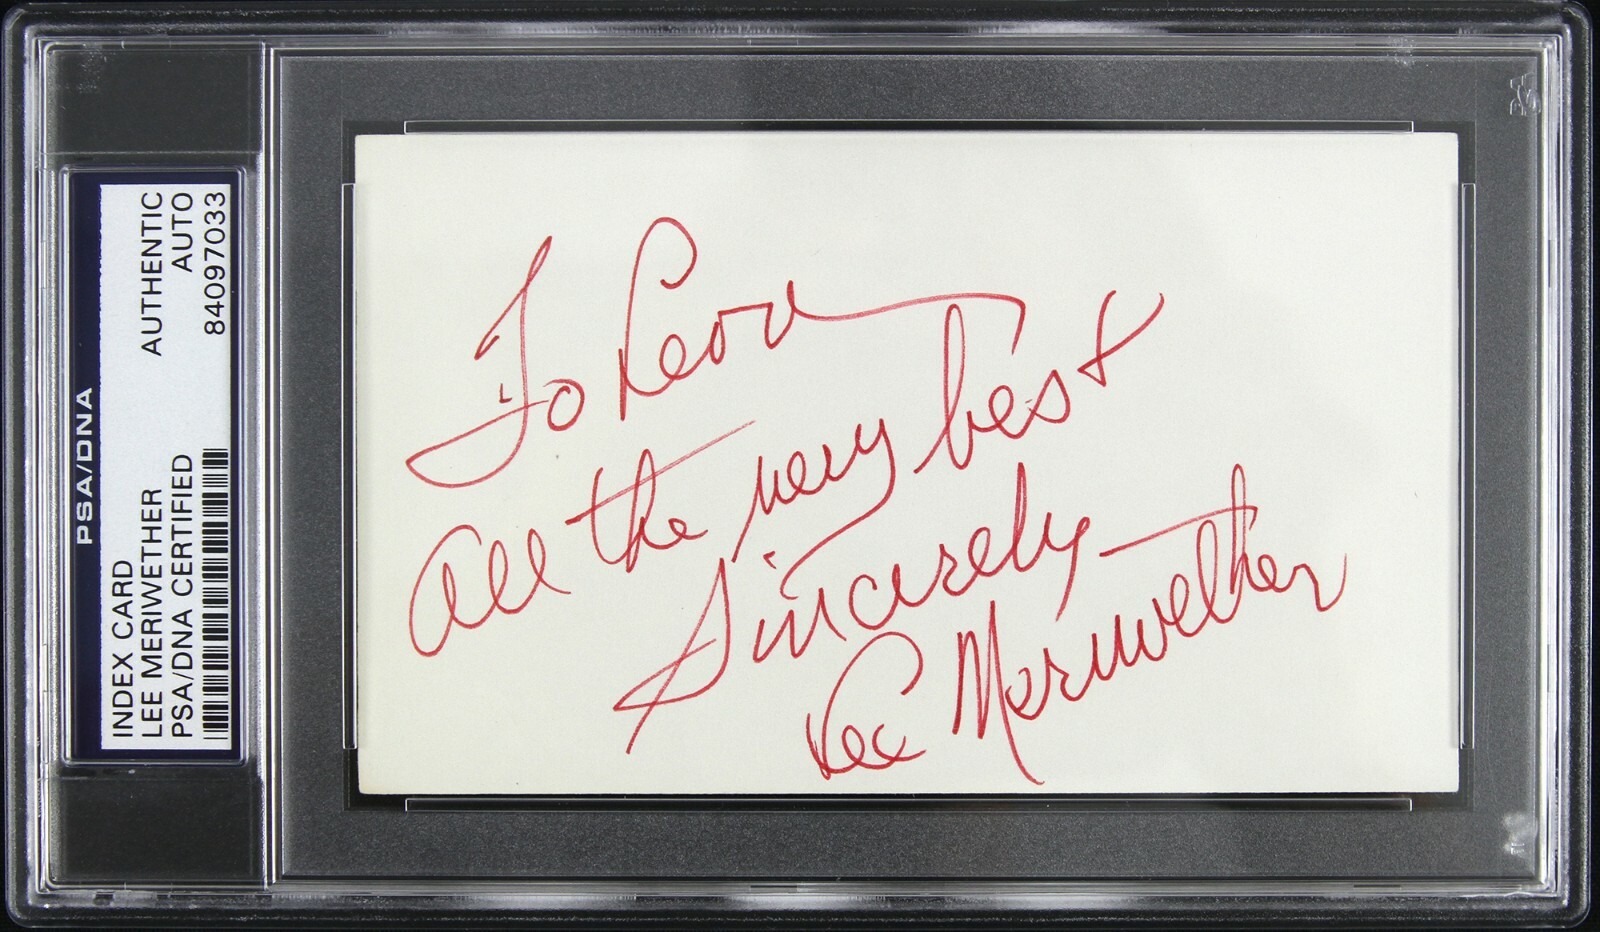 PSA/DNA
INDEX CARD
LEE MERIWETHER
PSA/DNA CERTIFIED
AUTHENTIC
AUTO
84097033
To Leon
All the very best
Sincerely
Lee Meriwether
PSA